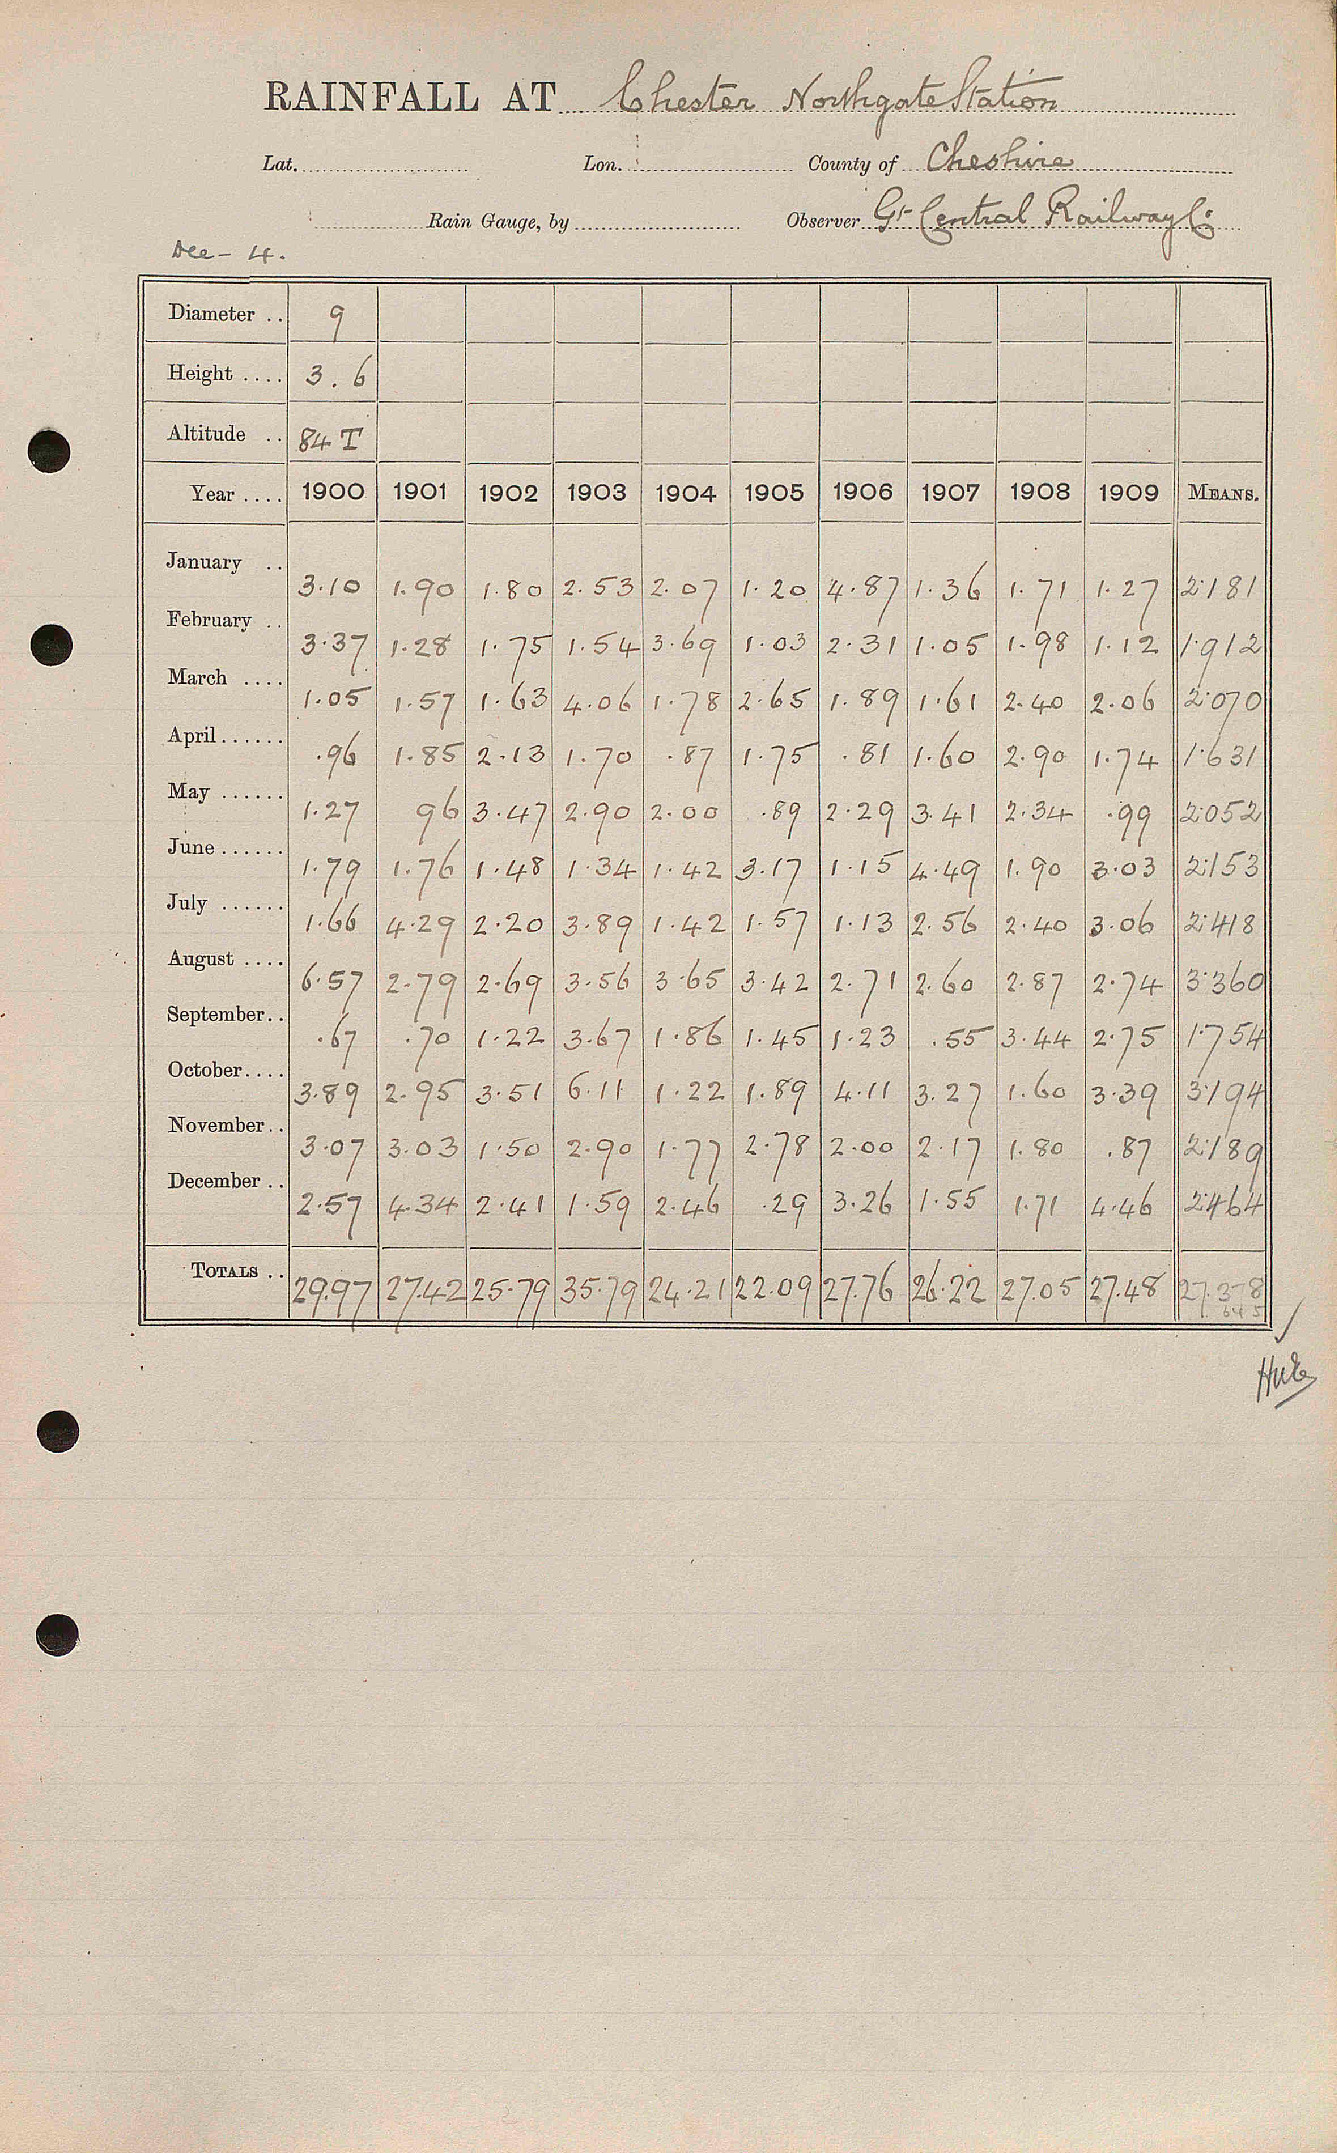 RAINFALL AT Chester Northgate Station
Lat. Lon. County of Cheshire
Rain Gauge, by Observer Gt Central Railway Co
Dee - 4.
Diameter .. 9
Height .... 3.6
Altitude .. 84 T
Year .... 1900 1901 1902 1903 1904 1905 1906 1907 1908 1909 MEANS.
January .. 3.10 1.90 1.80 2.53 2.07 1.20 4.87 1.36 1.71 1.27 2.181
February .. 3.37 1.28 1.75 1.54 3.69 1.03 2.31 1.05 1.98 1.12 1.912
March .... 1.05 1.57 1.63 4.06 1.78 2.65 1.89 1.61 2.40 2.06 2.070
April...... .96 1.85 2.13 1.70 .87 1.75 .81 1.60 2.90 1.74 1.631
May ...... 1.27 96 3.47 2.90 2.00 .89 2.29 3.41 2.34 .99 2.052
June...... 1.79 1.76 1.48 1.34 1.42 3.17 1.15 4.49 1.90 3.03 2.153
July ...... 1.66 4.29 2.20 3.89 1.42 1.57 1.13 2.56 2.40 3.06 2.418
August .... 6.57 2.79 2.69 3.56 3.65 3.42 2.71 2.60 2.87 2.74 3.360
September.. .67 .70 1.22 3.67 1.86 1.45 1.23 .55 3.44 2.75 1.754
October.... 3.89 2.95 3.51 6.11 1.22 1.89 4.11 3.27 1.60 3.39 3.194
November.. 3.07 3.03 1.50 2.90 1.77 2.78 2.00 2.17 1.80 .87 2.189
December .. 2.57 4.34 2.41 1.59 2.46 .29 3.26 1.55 1.71 4.46 2.464
TOTALS .. 29.97 27.42 25.79 35.79 24.21 22.09 27.76 26.22 27.05 27.48 27.378